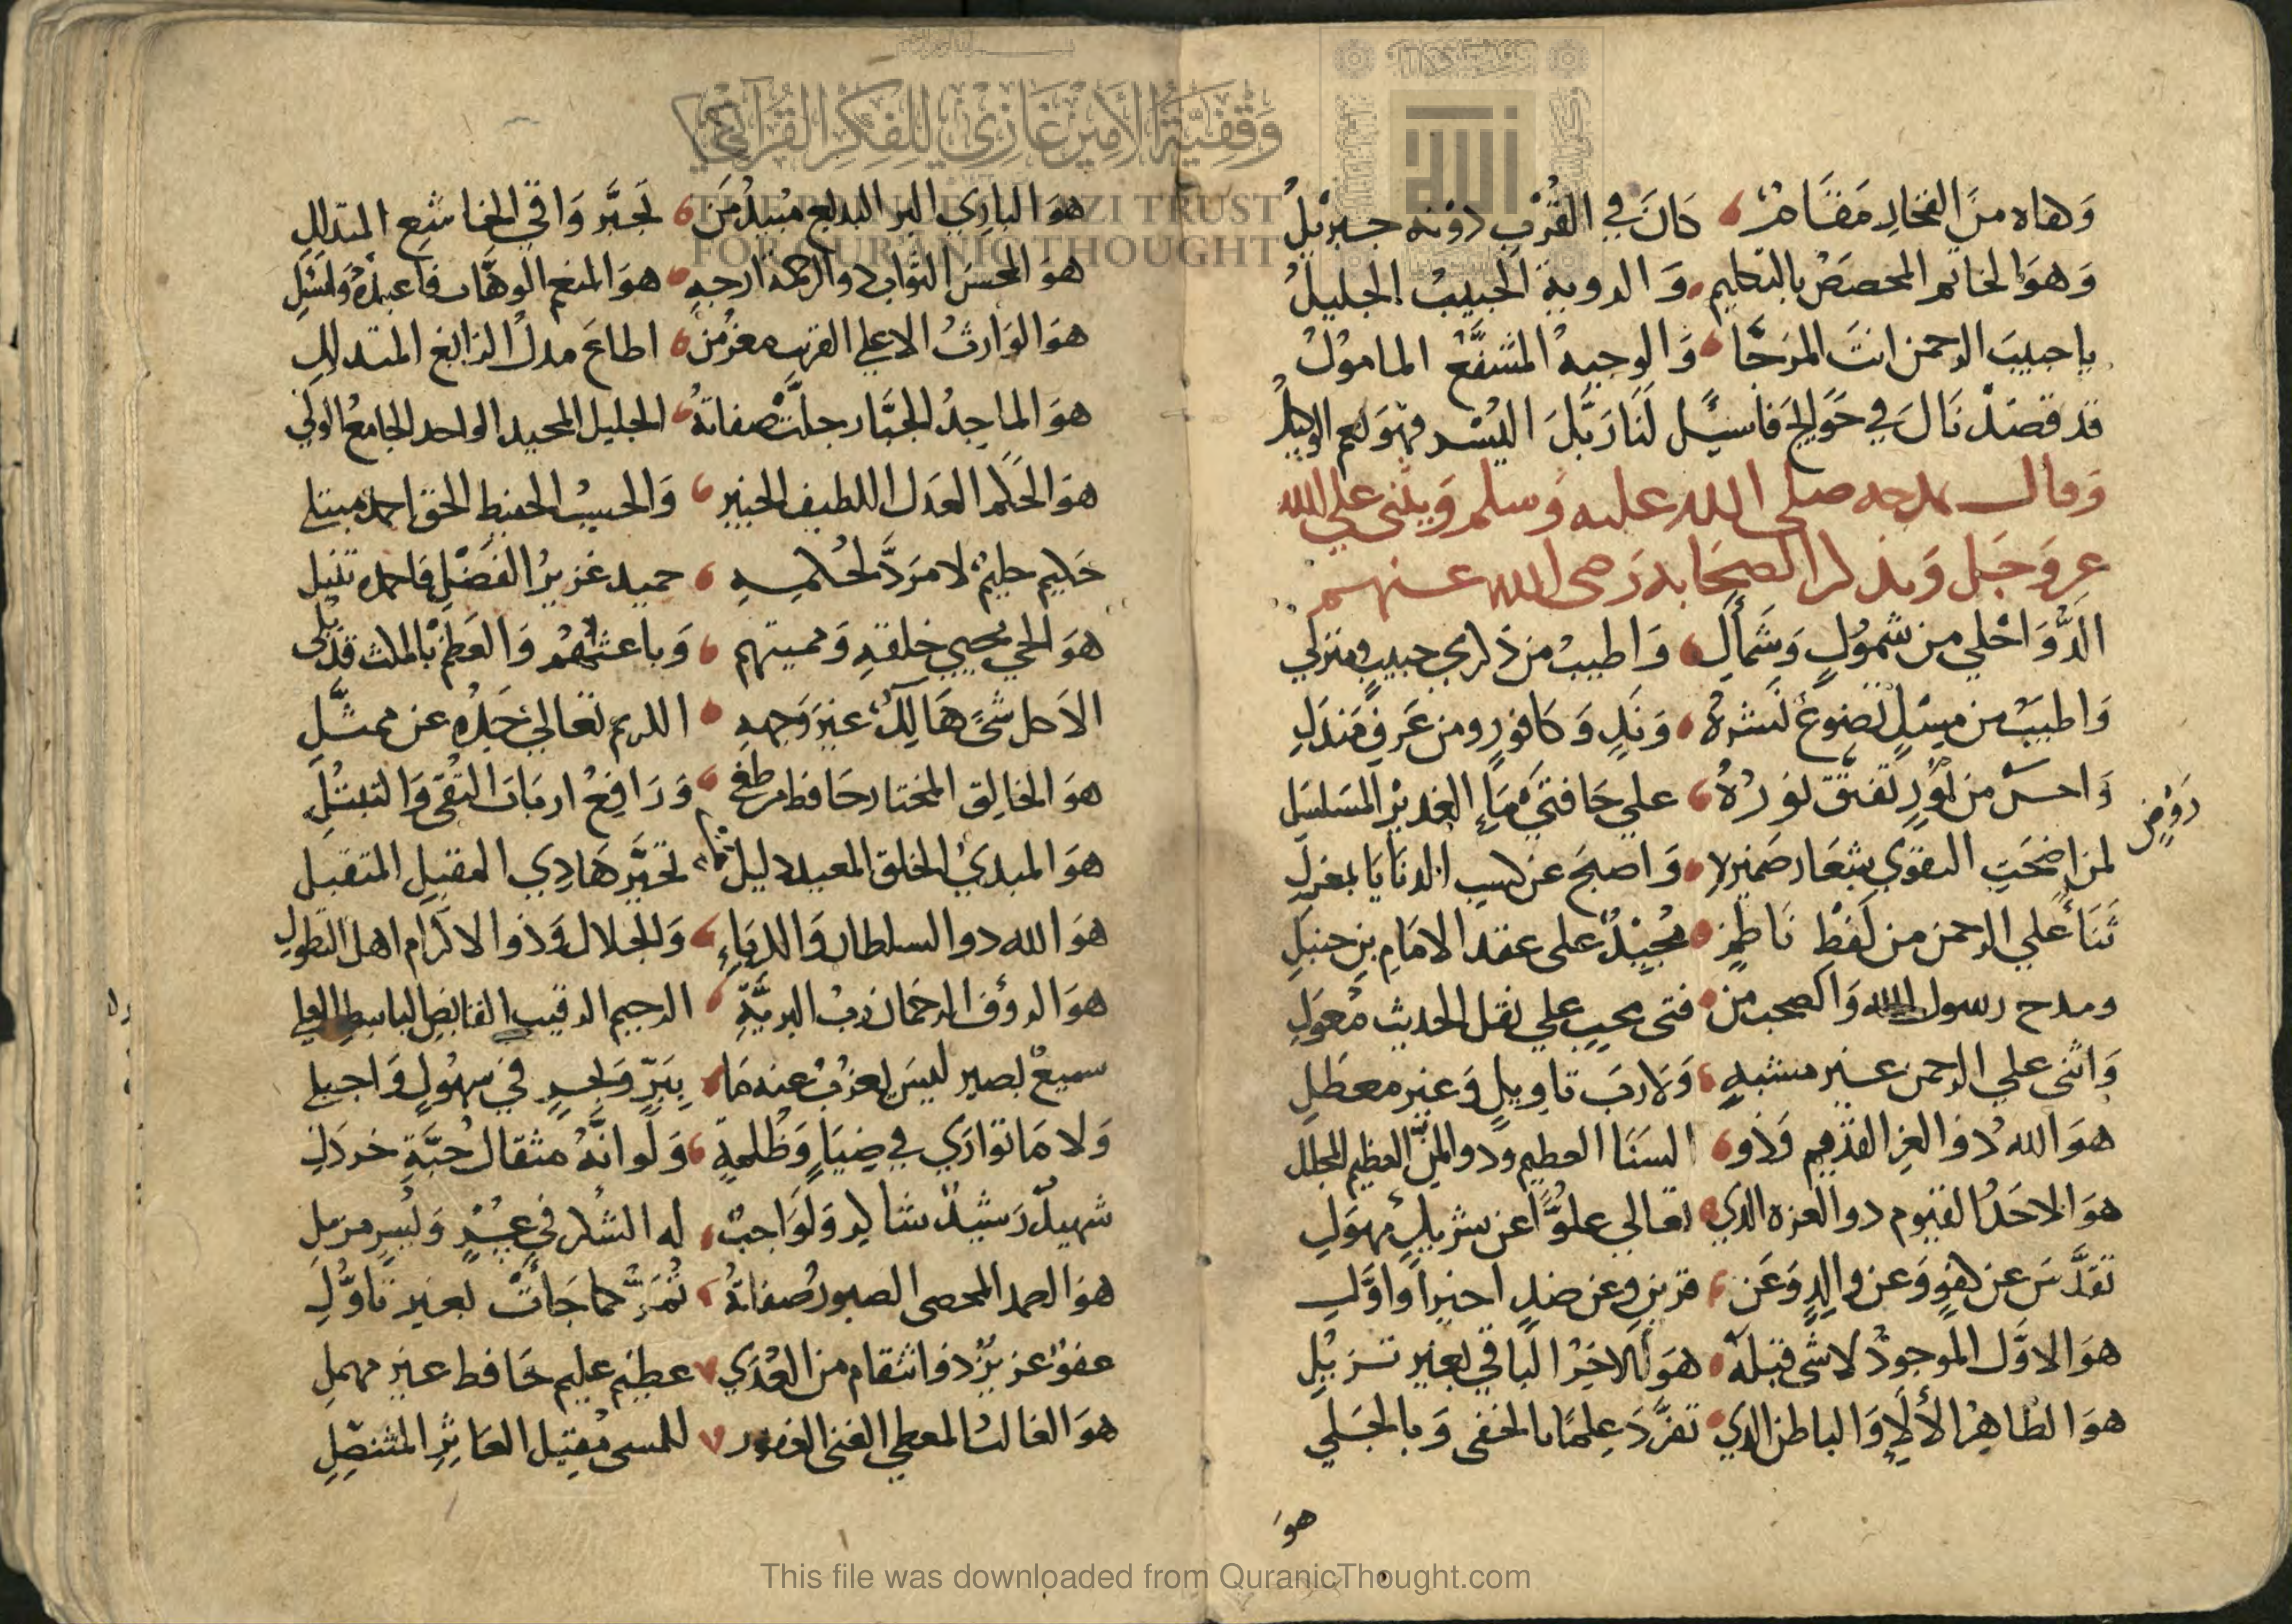 وَقْفِيَّةُ الأَمِيْرِ غَازِيْ لِلْفِكْرِ القُرْآنِيِّ
THE PRINCE GHAZI TRUST
FOR QURANIC THOUGHT
وَحباه من الفخار مقاما كان في القُرب دونه جبرئيلُ
وَهوَ الخاتم المخصص بالتكليم وَالروية الحبيبُ الجليلُ
يا حبيبَ الرحمن انتَ المرَجّا وَالوجيهُ المشفَّعُ المامولُ
قد قصدناكَ في حَوايج فاسئل لَنَا رَبَّكَ اليُسر فهوَ نعم الوكيلُ
وَقال يمدحه صلى الله عليه وَسلم وَيثني علي الله
عز وَجَل وَيذكر الصحَابه رَضى الله عنهم
الَذُّ وَاحْلي من شَمُولٍ وَشَمألِ وَاطيبُ من ذكرى حبيبٍ ومنزلِ
وَاطيَبُ من مسكٍ تضوعَ نَشرهُ وَندٍ وَكافورٍ ومن عَرفِ مَندَلِ
وَاحسنُ من نَورٍ تَفتَّقَ نَورُهُ علي حَافتَي مَاءِ الغديرِ المسَلسَلِ
رَوْضٍ
لمن اضحَتِ التقوى شعَارَ ضميره وَاصبحَ عن كسبِ الدنَايَا بمعزلِ
ثَنَاءٌ علي الرحمن من لَفْظِ نَاظمٍ مُجيدٌ على عقد الامَامِ بنِ حنبلِ
ومدح رسول الله وَالصحب من فتى محبٍ علي نقل الحديث مُعَولِ
وَاثنى علي الرحمن غير مشبهٍ وَلا ربَ تاويلٍ وَغير معطلِ
هوَ الله ذُو العز القديم وَذو السنَا العظيم وذو المنِّ العظيم المجلل
هوَ الاحَدُ القيوم ذو العزه الذي تعالي علوًّا عن شريكٍ مهولِ
تقدَّسَ عن كفوٍ وَعن والدٍ وَعَن قرينٍ وعن ضدٍ اخيراً واوَّلِ
هوَ الاوَّل الموجودُ لا شى قبله هوَ الاخرُ الباقي بغير تزيُّلِ
هوَ الظاهرُ الألاءِ وَالباطن الذي تفرَّدَ علمًا بالخفى وَبالجَلي
هوَ
هوَ البارى البر البديع مبيدُ مَن تجبَّر وَاقي الخاشع المتذللِ
هوَ المحسن التواب ذو الرحمة ارجه هوَ المنعم الوهّاب فاعبدهُ وَاسئلِ
هوَ الوَارثُ الاعلي القريب معز من اطاعَ مذلُ الزائغ المتدللِ
هوَ الماجدُ الجبَّار جلَّتْ صفاتهُ الجليل المجيد الواحد الجامعُ الولي
هوَ الحكم العدل اللطيف الخبير وَالحسيبُ الحفيظ الحق احمده مبتلي
حَكيم حليمٌ لا مرَدَّ لحُكمهِ حميد غزيرُ الفَضلِ فاحمده تنبل
هوَ الحي محيي خلقهِ وَمميتهم وَباعثهُم وَالعظم بالملث قد بُلي
الا كل شيءٍ هَالكٌ غيرَ وَجههِ الكريم تعَالي جَدُّهُ عن ممثَّلِ
هوَ الخالق المختار حَافظ من طغى وَرَافعُ اربَاب التُقى وَالتبتُلِ
هوَ المبديُ الخلق المعيد دليل من تحيَّر هَادِي المقبلِ المتقبل
هوَ الله ذو السلطان وَالكبرياءِ وَالجلال وَذوا الاكرام اهل التطولِ
هوَ الرؤف الرحمان ربُ البريَّةِ الرحيم الرقيب القابض الباسط العلي
سميعٌ بصير ليسَ يعزبُ عنه مَا ببَرٍّ وَبحرٍ في سهُولٍ وَاجبلِ
وَلا مَا توارَي في ضيَاءٍ وَظُلمةٍ وَلَو انَّهُ مثقال حَبَّةِ خردلِ
شهيدٌ رَشيدٌ شاكر وَلَوَاجبٌ له الشكر في عُسرٍ وَيُسرٍ مزمل
هوَ الصمد المحصى الصبور صفاتهُ تُمَرُّ كما جَأتْ بغير تاوُّلِ
عفوٌ عزيزٌ ذو انتقام من العُدَي عظيم عليم حَافظ غير مهملِ
هوَ الغالبُ المعطي الغنى الغفور للمسى مُقيل العَاثِرِ المتنصِّلِ
This file was downloaded from QuranicThought.com